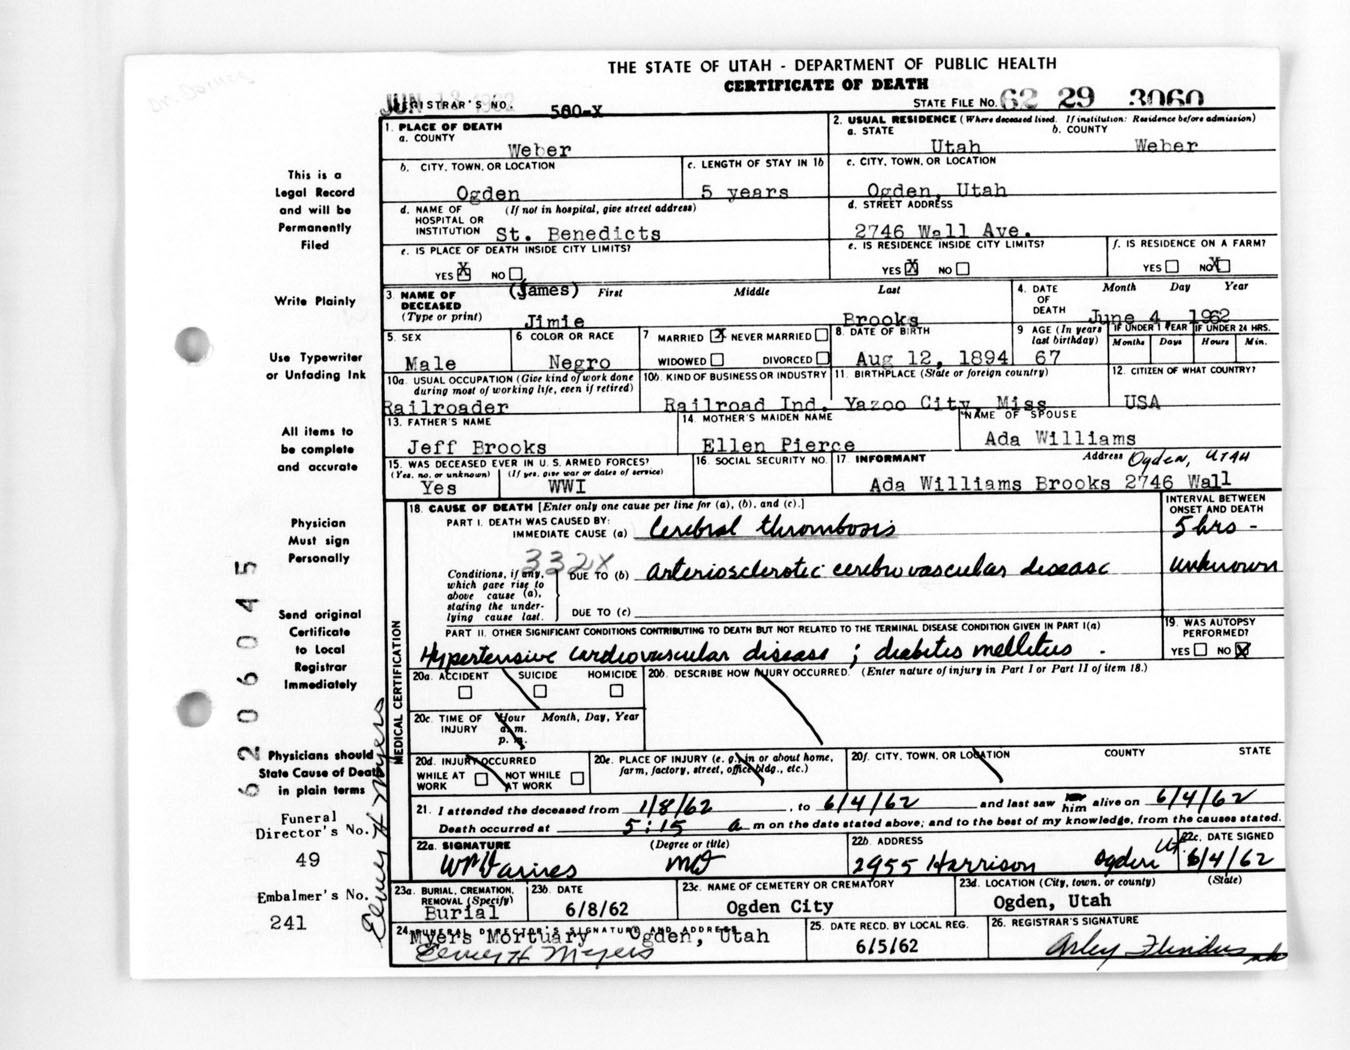 THE STATE OF UTAH - DEPARTMENT OF PUBLIC HEALTH
CERTIFICATE OF DEATH
REGISTRAR'S NO. 560-X
STATE FILE NO. 62 29 3060
1. PLACE OF DEATH
a. COUNTY
Weber
2. USUAL RESIDENCE (Where deceased lived. If institution: Residence before admission)
a. STATE
Utah
b. COUNTY
Weber
b. CITY, TOWN, OR LOCATION
Ogden
c. LENGTH OF STAY IN 1b
5 years
c. CITY, TOWN, OR LOCATION
Ogden, Utah
d. NAME OF HOSPITAL OR INSTITUTION (If not in hospital, give street address)
St. Benedicts
d. STREET ADDRESS
2746 Wall Ave.
e. IS PLACE OF DEATH INSIDE CITY LIMITS?
YES X NO
e. IS RESIDENCE INSIDE CITY LIMITS?
YES X NO
f. IS RESIDENCE ON A FARM?
YES NO X
3. NAME OF DECEASED (Type or print)
First Middle Last
(James)
Jimie Brooks
4. DATE OF DEATH
Month Day Year
June 4, 1962
5. SEX
Male
6 COLOR OR RACE
Negro
7 MARRIED X NEVER MARRIED
WIDOWED DIVORCED
8. DATE OF BIRTH
Aug 12, 1894
9 AGE (In years last birthday)
67
IF UNDER 1 YEAR
Months Days
IF UNDER 24 HRS.
Hours Min.
10a. USUAL OCCUPATION (Give kind of work done during most of working life, even if retired)
Railroader
10b. KIND OF BUSINESS OR INDUSTRY
Railroad Ind.
11. BIRTHPLACE (State or foreign country)
Yazoo City, Miss
12. CITIZEN OF WHAT COUNTRY?
USA
13. FATHER'S NAME
Jeff Brooks
14. MOTHER'S MAIDEN NAME
Ellen Pierce
NAME OF SPOUSE
Ada Williams
15. WAS DECEASED EVER IN U. S. ARMED FORCES?
(Yes, no, or unknown) (If yes, give war or dates of service)
Yes WWI
16. SOCIAL SECURITY NO.
17. INFORMANT Address Ogden, Utah
Ada Williams Brooks 2746 Wall
MEDICAL CERTIFICATION
18. CAUSE OF DEATH [Enter only one cause per line for (a), (b), and (c).]
INTERVAL BETWEEN ONSET AND DEATH
PART I. DEATH WAS CAUSED BY:
IMMEDIATE CAUSE (a) Cerebral thrombosis 5 hrs -
332X
Conditions, if any, which gave rise to above cause (a), stating the underlying cause last.
DUE TO (b) arteriosclerotic cerebrovascular disease unknown
DUE TO (c)
PART II. OTHER SIGNIFICANT CONDITIONS CONTRIBUTING TO DEATH BUT NOT RELATED TO THE TERMINAL DISEASE CONDITION GIVEN IN PART I(a)
Hypertensive cardiovascular disease ; diabetis mellitus .
19. WAS AUTOPSY PERFORMED?
YES NO X
20a. ACCIDENT SUICIDE HOMICIDE
20b. DESCRIBE HOW INJURY OCCURRED. (Enter nature of injury in Part I or Part II of item 18.)
20c. TIME OF INJURY
Hour Month, Day, Year
a. m.
p. m.
20d. INJURY OCCURRED
WHILE AT WORK NOT WHILE AT WORK
20e. PLACE OF INJURY (e. g., in or about home, farm, factory, street, office bldg., etc.)
20f. CITY, TOWN, OR LOCATION COUNTY STATE
21. I attended the deceased from 1/8/62, to 6/4/62 and last saw him alive on 6/4/62
Death occurred at 5:15 a m on the date stated above; and to the best of my knowledge, from the causes stated.
22a. SIGNATURE (Degree or title)
MD
22b. ADDRESS
2955 Harrison Ogden Ut
22c. DATE SIGNED
6/4/62
23a. BURIAL, CREMATION, REMOVAL (Specify)
Burial
23b. DATE
6/8/62
23c. NAME OF CEMETERY OR CREMATORY
Ogden City
23d. LOCATION (City, town, or county) (State)
Ogden, Utah
24. FUNERAL DIRECTOR'S SIGNATURE AND ADDRESS
Myers Mortuary Ogden, Utah
Elmer H Myers
25. DATE RECD. BY LOCAL REG.
6/5/62
26. REGISTRAR'S SIGNATURE
This is a
Legal Record
and will be
Permanently
Filed
Write Plainly
Use Typewriter
or Unfading Ink
All items to
be complete
and accurate
Physician
Must sign
Personally
Send original
Certificate
to Local
Registrar
Immediately
Physicians should
State Cause of Death
in plain terms
Funeral
Director's No.
49
Embalmer's No.
241
Elmer H Myers
62 06045